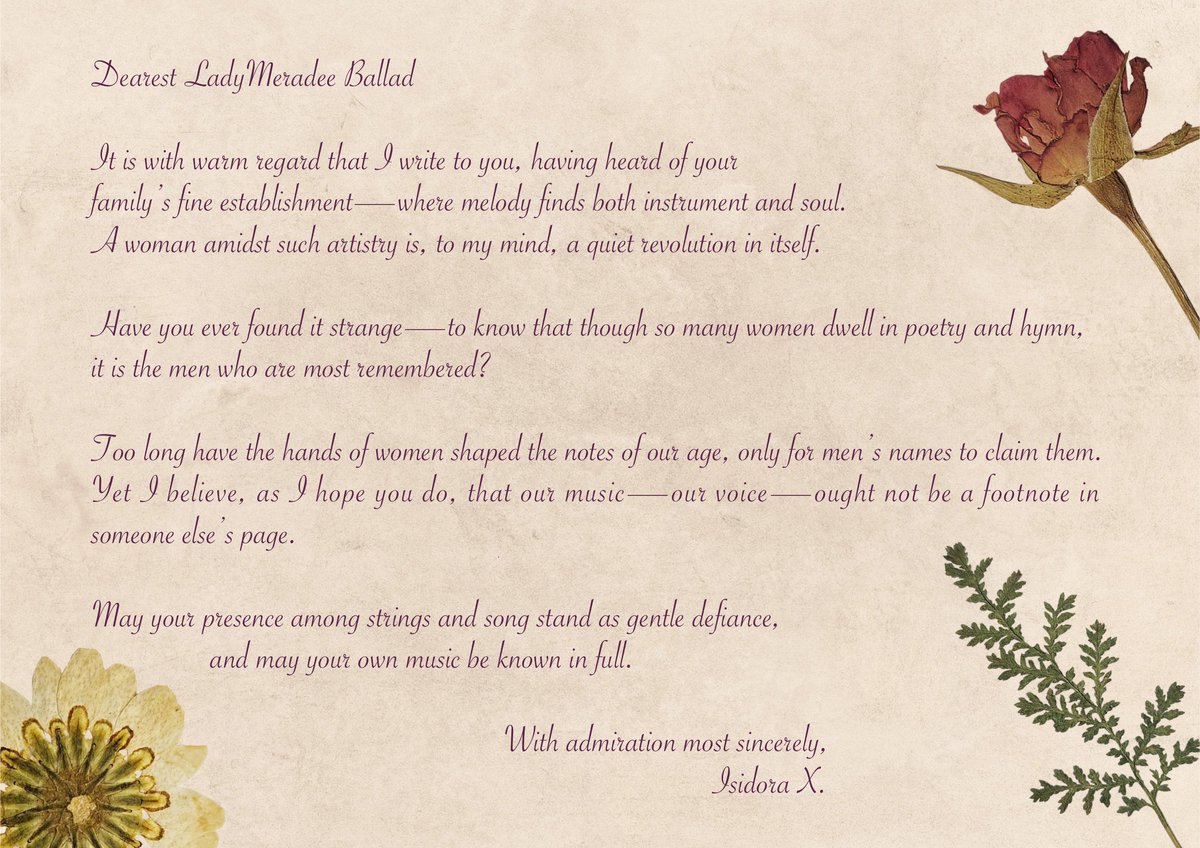 Dearest LadyMeradee Ballad
It is with warm regard that I write to you, having heard of your
family's fine establishment——where melody finds both instrument and soul.
A woman amidst such artistry is, to my mind, a quiet revolution in itself.
Have you ever found it strange——to know that though so many women dwell in poetry and hymn,
it is the men who are most remembered?
Too long have the hands of women shaped the notes of our age, only for men's names to claim them.
Yet I believe, as I hope you do, that our music——our voice——ought not be a footnote in
someone else's page.
May your presence among strings and song stand as gentle defiance,
and may your own music be known in full.
With admiration most sincerely,
Isidora X.